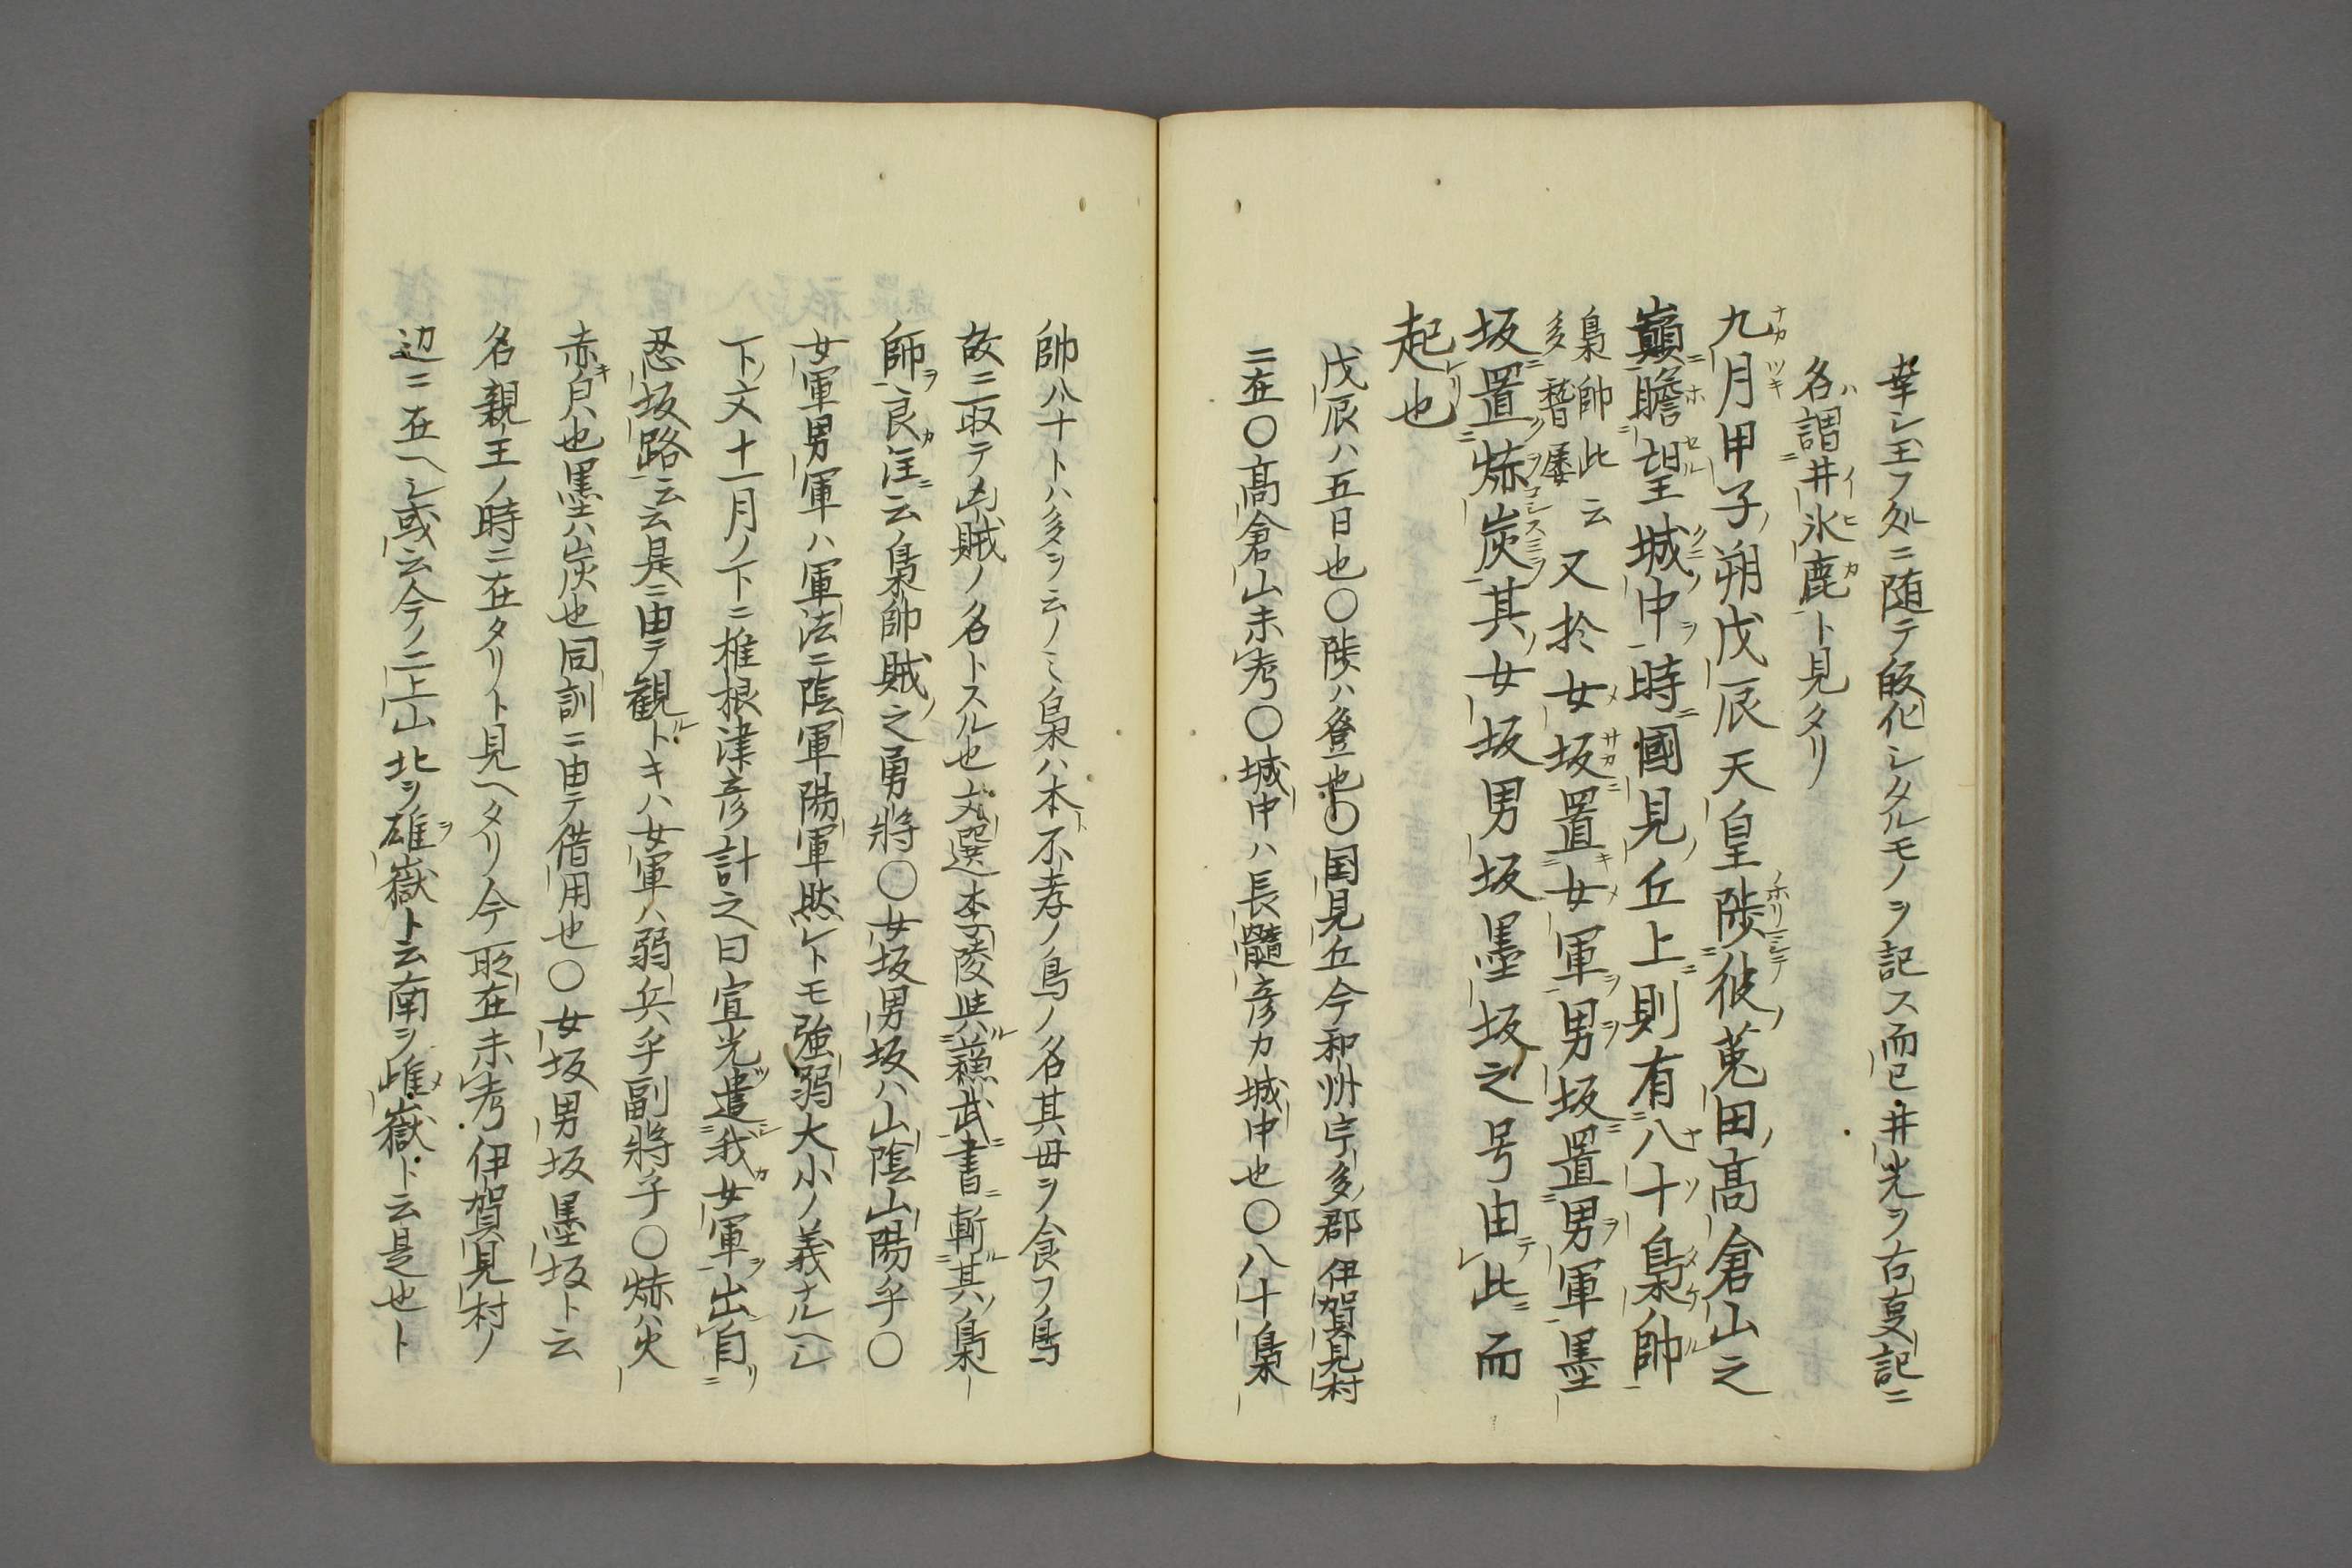 幸シ玉フ処ニ随テ皈化シタルモノヲ記ス而已井光ヲ古事記ニ
名謂井氷鹿ト見タリ
九月甲子朔戊辰天皇陟彼菟田髙倉山之
巔瞻望城中時國見丘上則有八十梟帥
梟帥此云多稽屢又於女坂置女軍男坂置男軍墨
坂置焃炭其女坂男坂墨坂之号由此而
起也
戊辰ハ五日也〇陟ハ登也〇国見丘今和州宇多郡伊賀見村
ニ在〇髙倉山未考〇城中ハ長髓彦カ城中也〇八十梟
帥八十トハ多ヲ云ノミ梟ハ本不孝ノ鳥ノ名其毋ヲ食フノ鳥
故ニ取テ凶賊ノ名トスル也文選李陵與蘓武書斬其梟
師良注云梟帥賊之勇將〇女坂男坂ハ山陰山陽乎〇
女軍男軍ハ軍法ニ陰軍陽軍然レトモ強弱大小ノ義ナルヘシ
下文十一月ノ下ニ推根津彦計之曰宜先遣我女軍出自
忍坂路云云是ニ由テ観トキハ女軍ハ弱兵乎副將乎〇焃ハ火
赤皃也墨ハ炭也同訓ニ由テ借用也〇女坂男坂墨坂ト云
名親王ノ時ニ在タリト見ヘタリ今所在未考伊賀見村ノ
辺ニ在ヘシ或云今ノ二上山北ヲ雄嶽ト云南ヲ雌嶽ト云是也ト